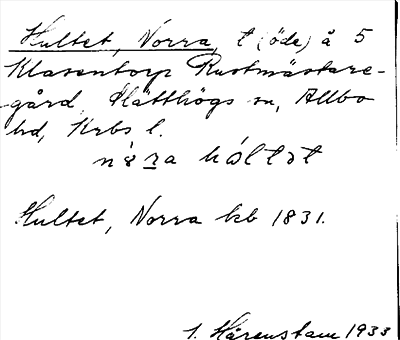 Hultet, Norra, t (öde) å 5
Klasentorp Rustmästare-
gård, Slätthögs sn, Allbo
hd, Krbs l.
Hultet, Norra kb 1831.
Hårenstam 1933